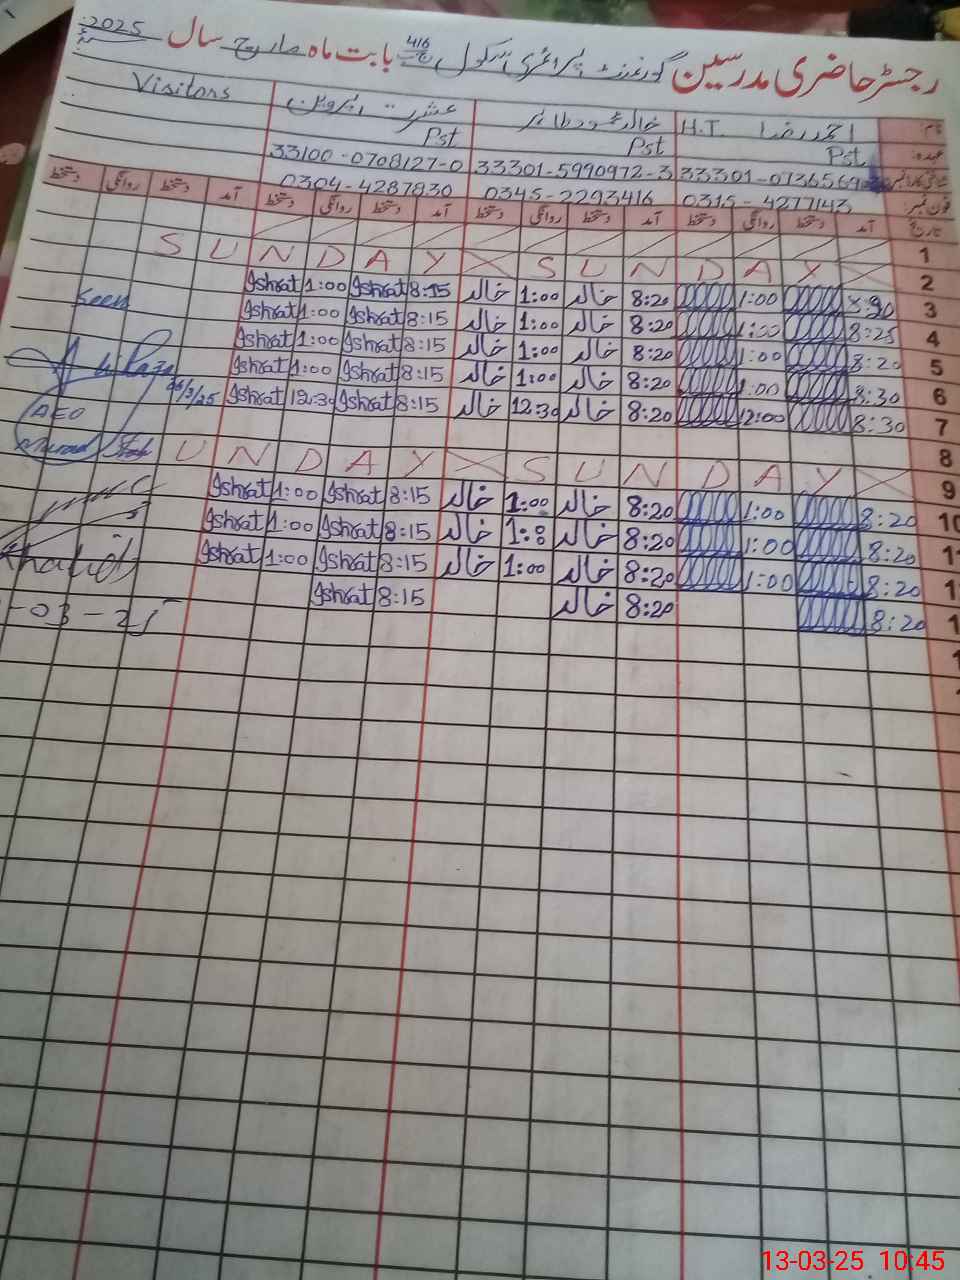 رجسٹر حاضری مدرسین گورنمنٹ پرائمری سکول 416 گ ب بابت ماہ مارچ سال 2025
نام: احمد رضا H.T خالد محمود طاہر عشرت پروین Visitors
عہدہ: Pst Pst Pst
33301-0736569 33301-5990972-3 33100-0708127-0
فون نمبر: 0315-4277143 0345-2293416 0304-4287830
تاریخ آمد دستخط روانگی دستخط آمد دستخط روانگی دستخط آمد دستخط روانگی دستخط آمد دستخط روانگی دستخط
1
2 S U N D A Y S U N D A Y
3 1:00 8:20 خالد 1:00 خالد 8:15 Ishrat 1:00 Ishrat
4 8:25 1:00 8:20 خالد 1:00 خالد 8:15 Ishrat 1:00 Ishrat Seen
5 8:20 1:00 8:20 خالد 1:00 خالد 8:15 Ishrat 1:00 Ishrat
6 8:30 1:00 8:20 خالد 1:00 خالد 8:15 Ishrat 1:00 Ishrat
7 8:30 12:00 8:20 خالد 12:30 خالد 8:15 Ishrat 12:30 Ishrat
AEO
8
9 U N D A Y S U N D A Y
10 8:20 1:00 8:20 خالد 1:00 خالد 8:15 Ishrat 1:00 Ishrat
8:20 1:00 8:20 خالد 1:8 خالد 8:15 Ishrat 1:00 Ishrat
8:20 1:00 8:20 خالد 1:00 خالد 8:15 Ishrat 1:00 Ishrat Khalid
8:20 8:20 خالد 8:15 Ishrat
-03-25
13-03-25 10:45